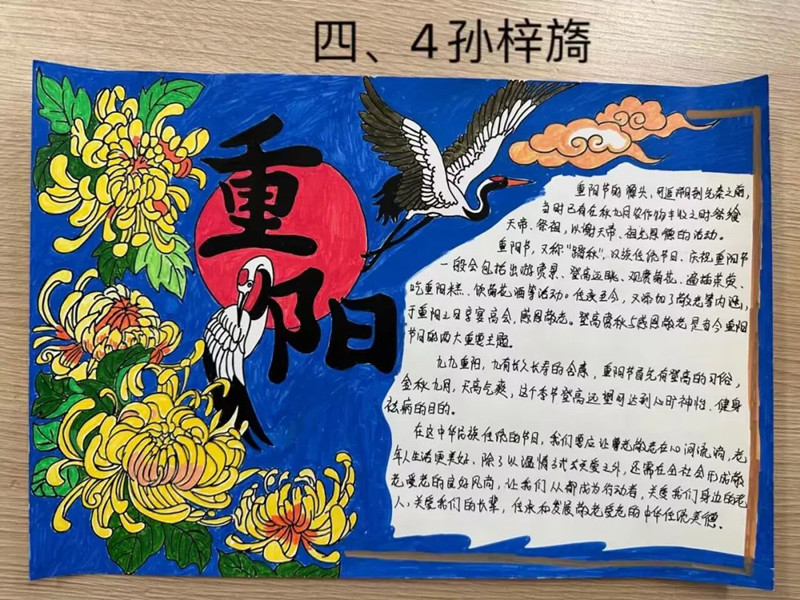 四、4孙梓旖
重阳
重阳节的源头,可追溯到先秦之前,
当时已有在秋九月农作物丰收之时祭飨
天帝、祭祖,以谢天帝、祖先恩德的活动。
重阳节,又称“踏秋”,汉族传统节日。庆祝重阳节
一般会包括出游赏景、登高远眺、观赏菊花、遍插茱萸、
吃重阳糕、饮菊花酒等活动。传承至今,又添加了敬老等内涵,
于重阳之日享宴高会,感恩敬老。登高赏秋与感恩敬老是当今重阳
节日的两大重要主题。
九九重阳,九有长久长寿的含意,重阳节首先有登高的习俗,
金秋九月,天高气爽,这个季节登高远望可达到心旷神怡、健身
祛病的目的。
在这中华民族传统的节日,我们要应让尊老敬老在心间流淌,老
年人生活更美好,除了以温情方式去关爱之外,还需在全社会形成敬
老爱老的良好风尚,让我们人都成为行动者,关爱我们身边的老
人,关爱我们的长辈,传承和发展敬老爱老的中华传统美德。